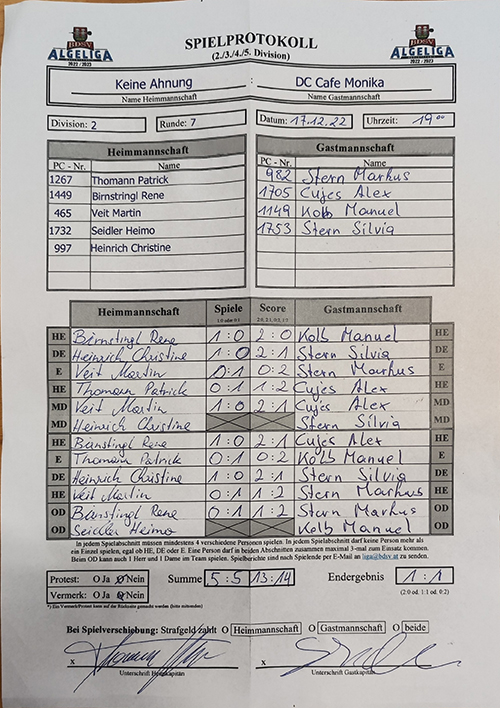 BDSV
ALGELIGA
2022 / 2023
SPIELPROTOKOLL
(2./3./4./5. Division)
BDSV
ALGELIGA
2022 / 2023
Keine Ahnung : DC Cafe Monika
Name Heimmannschaft Name Gastmannschaft
Division: 2 Runde: 7 Datum: 17.12.22 Uhrzeit: 19°°
Heimmannschaft Gastmannschaft
PC - Nr. Name PC - Nr. Name
1267 Thomann Patrick 982 Stern Markus
1449 Birnstringl Rene 1705 Cujes Alex
465 Veit Martin 1149 Kolb Manuel
1732 Seidler Heimo 1753 Stern Silvia
997 Heinrich Christine
Heimmannschaft Spiele Score Gastmannschaft
1:0 oder 0:1 2:0, 2:1, 0:2, 1:2
HE Birnstingl Rene 1:0 2:0 Kolb Manuel HE
DE Heinrich Christine 1:0 2:1 Stern Silvia DE
E Veit Martin 0:1 0:2 Stern Markus E
HE Thomann Patrick 0:1 1:2 Cujes Alex HE
MD Veit Martin 1:0 2:1 Cujes Alex MD
MD Heinrich Christine Stern Silvia MD
HE Birnstingl Rene 1:0 2:1 Cujes Alex HE
E Thomann Patrick 0:1 0:2 Kolb Manuel E
DE Heinrich Christine 1:0 2:1 Stern Silvia DE
HE Veit Martin 0:1 1:2 Stern Markus HE
OD Birnstingl Rene 0:1 1:2 Stern Markus OD
OD Seidler Heimo Kolb Manuel OD
In jedem Spielabschnitt müssen mindestens 4 verschiedene Personen spielen. In jedem Spielabschnitt darf keine Person mehr als
ein Einzel spielen, egal ob HE, DE oder E. Eine Person darf in beiden Abschnitten zusammen maximal 3-mal zum Einsatz kommen.
Beim OD kann auch 1 Herr und 1 Dame im Team spielen. Spielberichte sind nach Spielende per E-Mail an liga@bdsv.at zu senden.
Protest: O Ja O Nein Summe 5:5 13:14 Endergebnis 1:1
Vermerk: O Ja O Nein (2:0 od. 1:1 od. 0:2)
*) Ein Vermerk/Protest kann auf der Rückseite gemacht werden (bitte mitsenden)
Bei Spielverschiebung: Strafgeld zahlt O Heimmannschaft O Gastmannschaft O beide
x x
Unterschrift Heimkapitän Unterschrift Gastkapitän